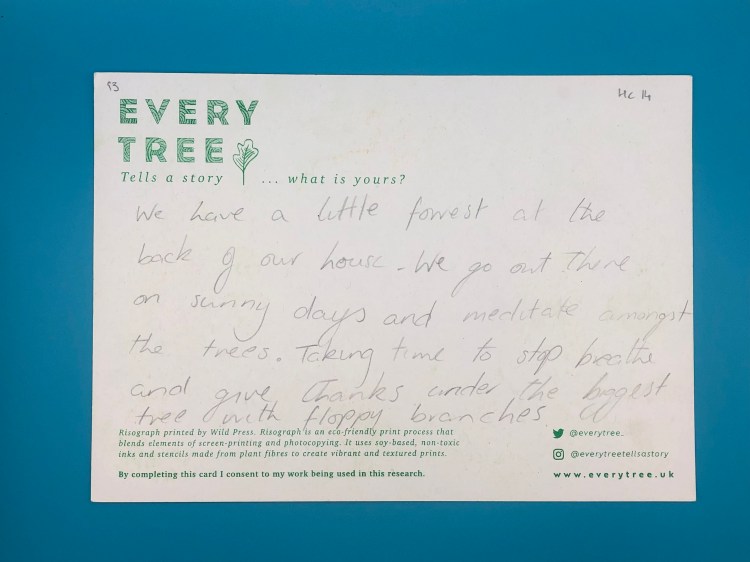 53
Hc 14
EVERY
TREE
Tells a story ... what is yours?
We have a little forrest at the
back of our house. We go out there
on sunny days and meditate amongst
the trees. Taking time to stop breathe
and give thanks under the biggest
tree with floppy branches.
Risograph printed by Wild Press. Risograph is an eco-friendly print process that
blends elements of screen-printing and photocopying. It uses soy-based, non-toxic
inks and stencils made from plant fibres to create vibrant and textured prints.
By completing this card I consent to my work being used in this research.
@everytree_
@everytreetellsastory
www.everytree.uk